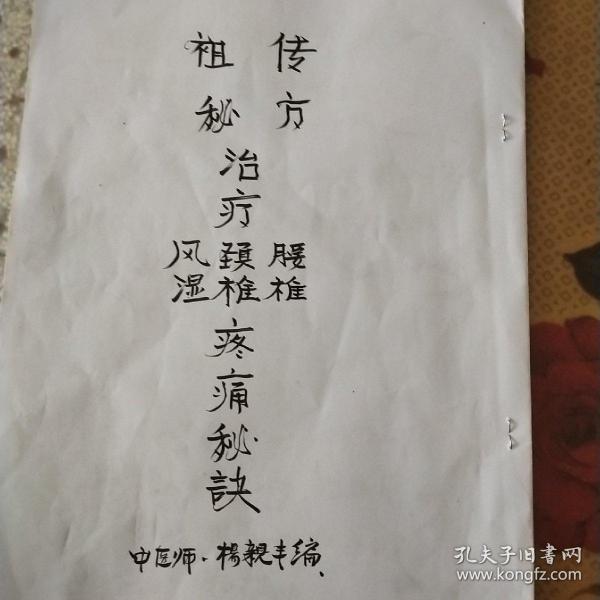 祖传
秘方
治
疗
风颈腰
湿椎椎
疼
痛
秘
訣
中医师·楊親丰编
孔夫子旧书网
www.kongfz.com